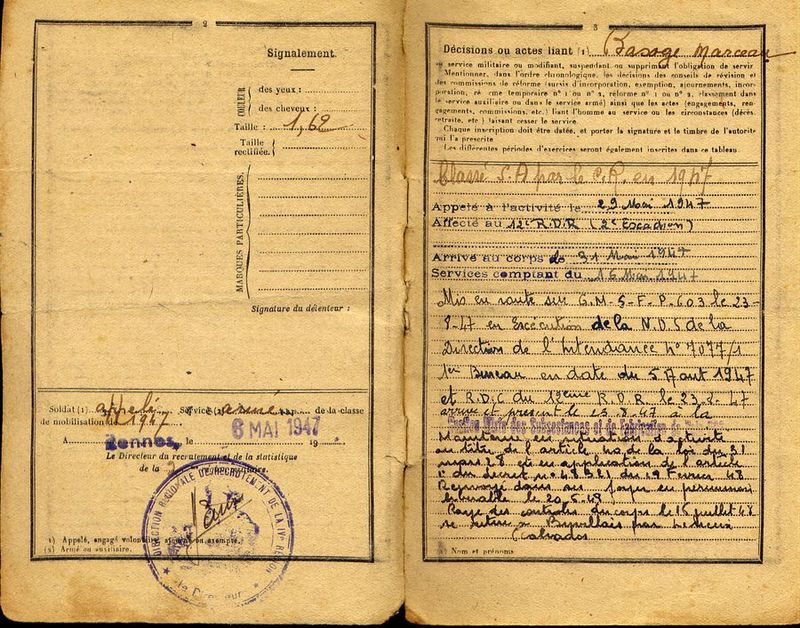 2
Signalement.
COULEUR
des yeux :
des cheveux :
Taille : 1,62
Taille rectifiée.
MARQUES PARTICULIÈRES.
Signature du détenteur :
Soldat (1) appelé Service (2) armé de la classe
de mobilisation de 1947
A Rennes, 6 MAI 1947 19
Le Directeur du recrutement et de la statistique
de la
DIRECTION RÉGIONALE DE RECRUTEMENT DE LA IVe RÉGION
Le Directeur
1) Appelé, engagé volontaire, ajourné ou exempté.
(2) Armé ou auxiliaire.
3
Décisions ou actes liant (1) Basoge Marceau
au service militaire ou modifiant, suspendant ou supprimant l'obligation de servir
Mentionner, dans l'ordre chronologique, les décisions des conseils de révision et
des commissions de réforme (sursis d'incorporation, exemption, ajournements, incor-
poration, réforme temporaire n° 1 ou n° 2, réforme n° 1 ou n° 2, classement dans
le service auxiliaire ou dans le service armé) ainsi que les actes (engagements, ren-
gagements, commissions, etc.) liant l'homme au service ou les circonstances (décès,
retraite, etc.) faisant cesser le service.
Chaque inscription doit être datée, et porter la signature et le timbre de l'autorité
qui l'a prescrite
Les différentes périodes d'exercices seront également inscrites dans ce tableau.
Classé S.A par le C.R. en 1947
Appelé à l'activité le 29 Mai 1947
Affecté au 12e R.D.R (2e Escadron)
Arrivé au corps le 31 Mai 1947
Services comptant du 16 Mai 1947
Mis en route sur G.M.S.F.P. 603 le 23-
8-47 en Exécution de la N.D.S de la
Direction de l'Intendance N° 7077/1
1er Bureau en date du 5 Aout 1947
et R.D.C du 12ème R.D.R. le 23-8-47
arrivé et présent le 25-8-47 à la
des Subsistances et de
Maintenu en situation d'activité
au titre de l'article 42 de la loi du 31
mars 28 et en application de l'article
1er du décret n° 48321 du 19 Fevrier 48
Renvoyé dans ses foyer en permission
libérable le 20-5-48
Rayé des controles du corps le 15 juillet 48
se retire à par Lisieux
Calvados
(1) Nom et prénoms